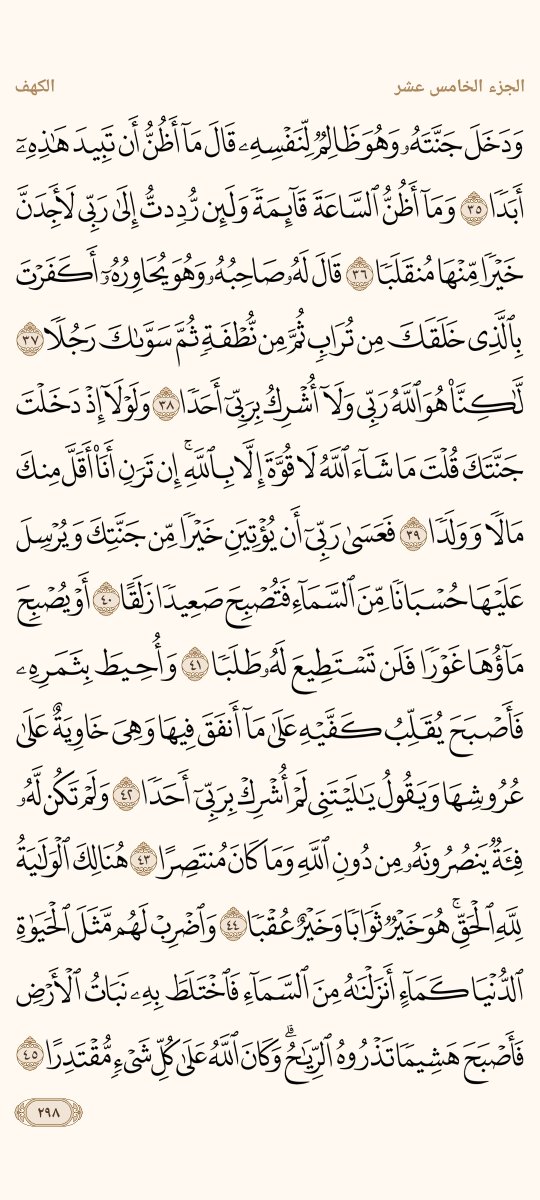 الجزء الخامس عشر
الكهف
وَدَخَلَ جَنَّتَهُۥ وَهُوَ ظَالِمٌ لِّنَفْسِهِۦ قَالَ مَآ أَظُنُّ أَن تَبِيدَ هَٰذِهِۦٓ
أَبَدًا ٣٥ وَمَآ أَظُنُّ ٱلسَّاعَةَ قَآئِمَةً وَلَئِن رُّدِدتُّ إِلَىٰ رَبِّى لَأَجِدَنَّ
خَيْرًا مِّنْهَا مُنقَلَبًا ٣٦ قَالَ لَهُۥ صَاحِبُهُۥ وَهُوَ يُحَاوِرُهُۥٓ أَكَفَرْتَ
بِٱلَّذِى خَلَقَكَ مِن تُرَابٍ ثُمَّ مِن نُّطْفَةٍ ثُمَّ سَوَّىٰكَ رَجُلًا ٣٧
لَّٰكِنَّا۠ هُوَ ٱللَّهُ رَبِّى وَلَآ أُشْرِكُ بِرَبِّىٓ أَحَدًا ٣٨ وَلَوْلَآ إِذْ دَخَلْتَ
جَنَّتَكَ قُلْتَ مَا شَآءَ ٱللَّهُ لَا قُوَّةَ إِلَّا بِٱللَّهِ ۚ إِن تَرَنِ أَنَا۠ أَقَلَّ مِنكَ
مَالًا وَوَلَدًا ٣٩ فَعَسَىٰ رَبِّىٓ أَن يُؤْتِيَنِ خَيْرًا مِّن جَنَّتِكَ وَيُرْسِلَ
عَلَيْهَا حُسْبَانًا مِّنَ ٱلسَّمَآءِ فَتُصْبِحَ صَعِيدًا زَلَقًا ٤٠ أَوْ يُصْبِحَ
مَآؤُهَا غَوْرًا فَلَن تَسْتَطِيعَ لَهُۥ طَلَبًا ٤١ وَأُحِيطَ بِثَمَرِهِۦ
فَأَصْبَحَ يُقَلِّبُ كَفَّيْهِ عَلَىٰ مَآ أَنفَقَ فِيهَا وَهِىَ خَاوِيَةٌ عَلَىٰ
عُرُوشِهَا وَيَقُولُ يَٰلَيْتَنِى لَمْ أُشْرِكْ بِرَبِّىٓ أَحَدًا ٤٢ وَلَمْ تَكُن لَّهُۥ
فِئَةٌ يَنصُرُونَهُۥ مِن دُونِ ٱللَّهِ وَمَا كَانَ مُنتَصِرًا ٤٣ هُنَالِكَ ٱلْوَلَٰيَةُ
لِلَّهِ ٱلْحَقِّ ۚ هُوَ خَيْرٌ ثَوَابًا وَخَيْرٌ عُقْبًا ٤٤ وَٱضْرِبْ لَهُم مَّثَلَ ٱلْحَيَوٰةِ
ٱلدُّنْيَا كَمَآءٍ أَنزَلْنَٰهُ مِنَ ٱلسَّمَآءِ فَٱخْتَلَطَ بِهِۦ نَبَاتُ ٱلْأَرْضِ
فَأَصْبَحَ هَشِيمًا تَذْرُوهُ ٱلرِّيَٰحُ ۗ وَكَانَ ٱللَّهُ عَلَىٰ كُلِّ شَىْءٍ مُّقْتَدِرًا ٤٥
٢٩٨